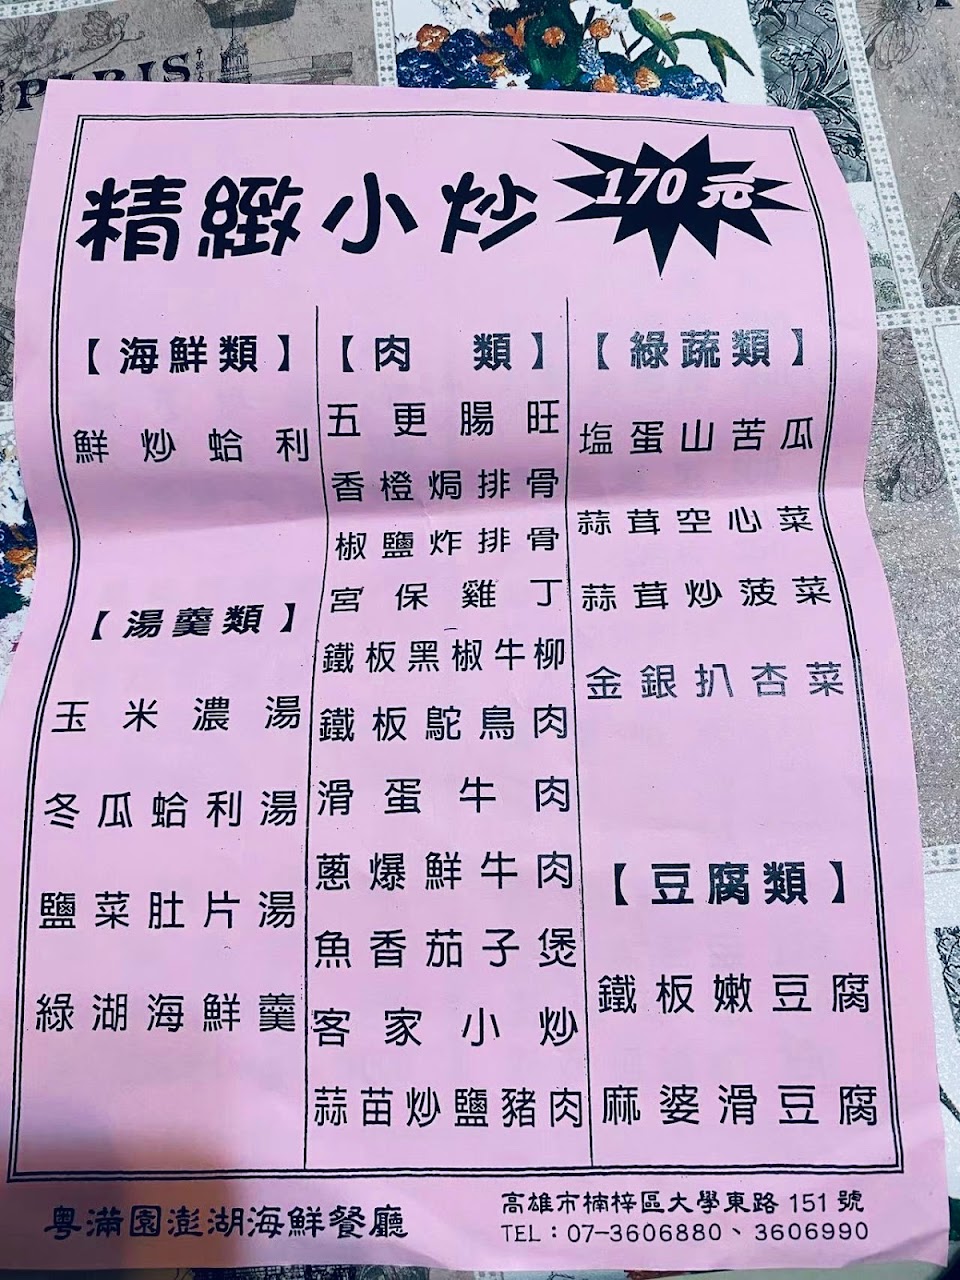 PARIS
精緻小炒
170元
【海鮮類】
鮮炒蛤利
【湯羹類】
玉米濃湯
冬瓜蛤利湯
鹽菜肚片湯
綠湖海鮮羹
【肉 類】
五更腸旺
香橙焗排骨
椒鹽炸排骨
宮保雞丁
鐵板黑椒牛柳
鐵板鴕鳥肉
滑蛋牛肉
蔥爆鮮牛肉
魚香茄子煲
客家小炒
蒜苗炒鹽豬肉
【綠蔬類】
塩蛋山苦瓜
蒜茸空心菜
蒜茸炒菠菜
金銀扒杏菜
【豆腐類】
鐵板嫩豆腐
麻婆滑豆腐
粵滿園澎湖海鮮餐廳
高雄市楠梓區大學東路 151 號
TEL：07-3606880、3606990